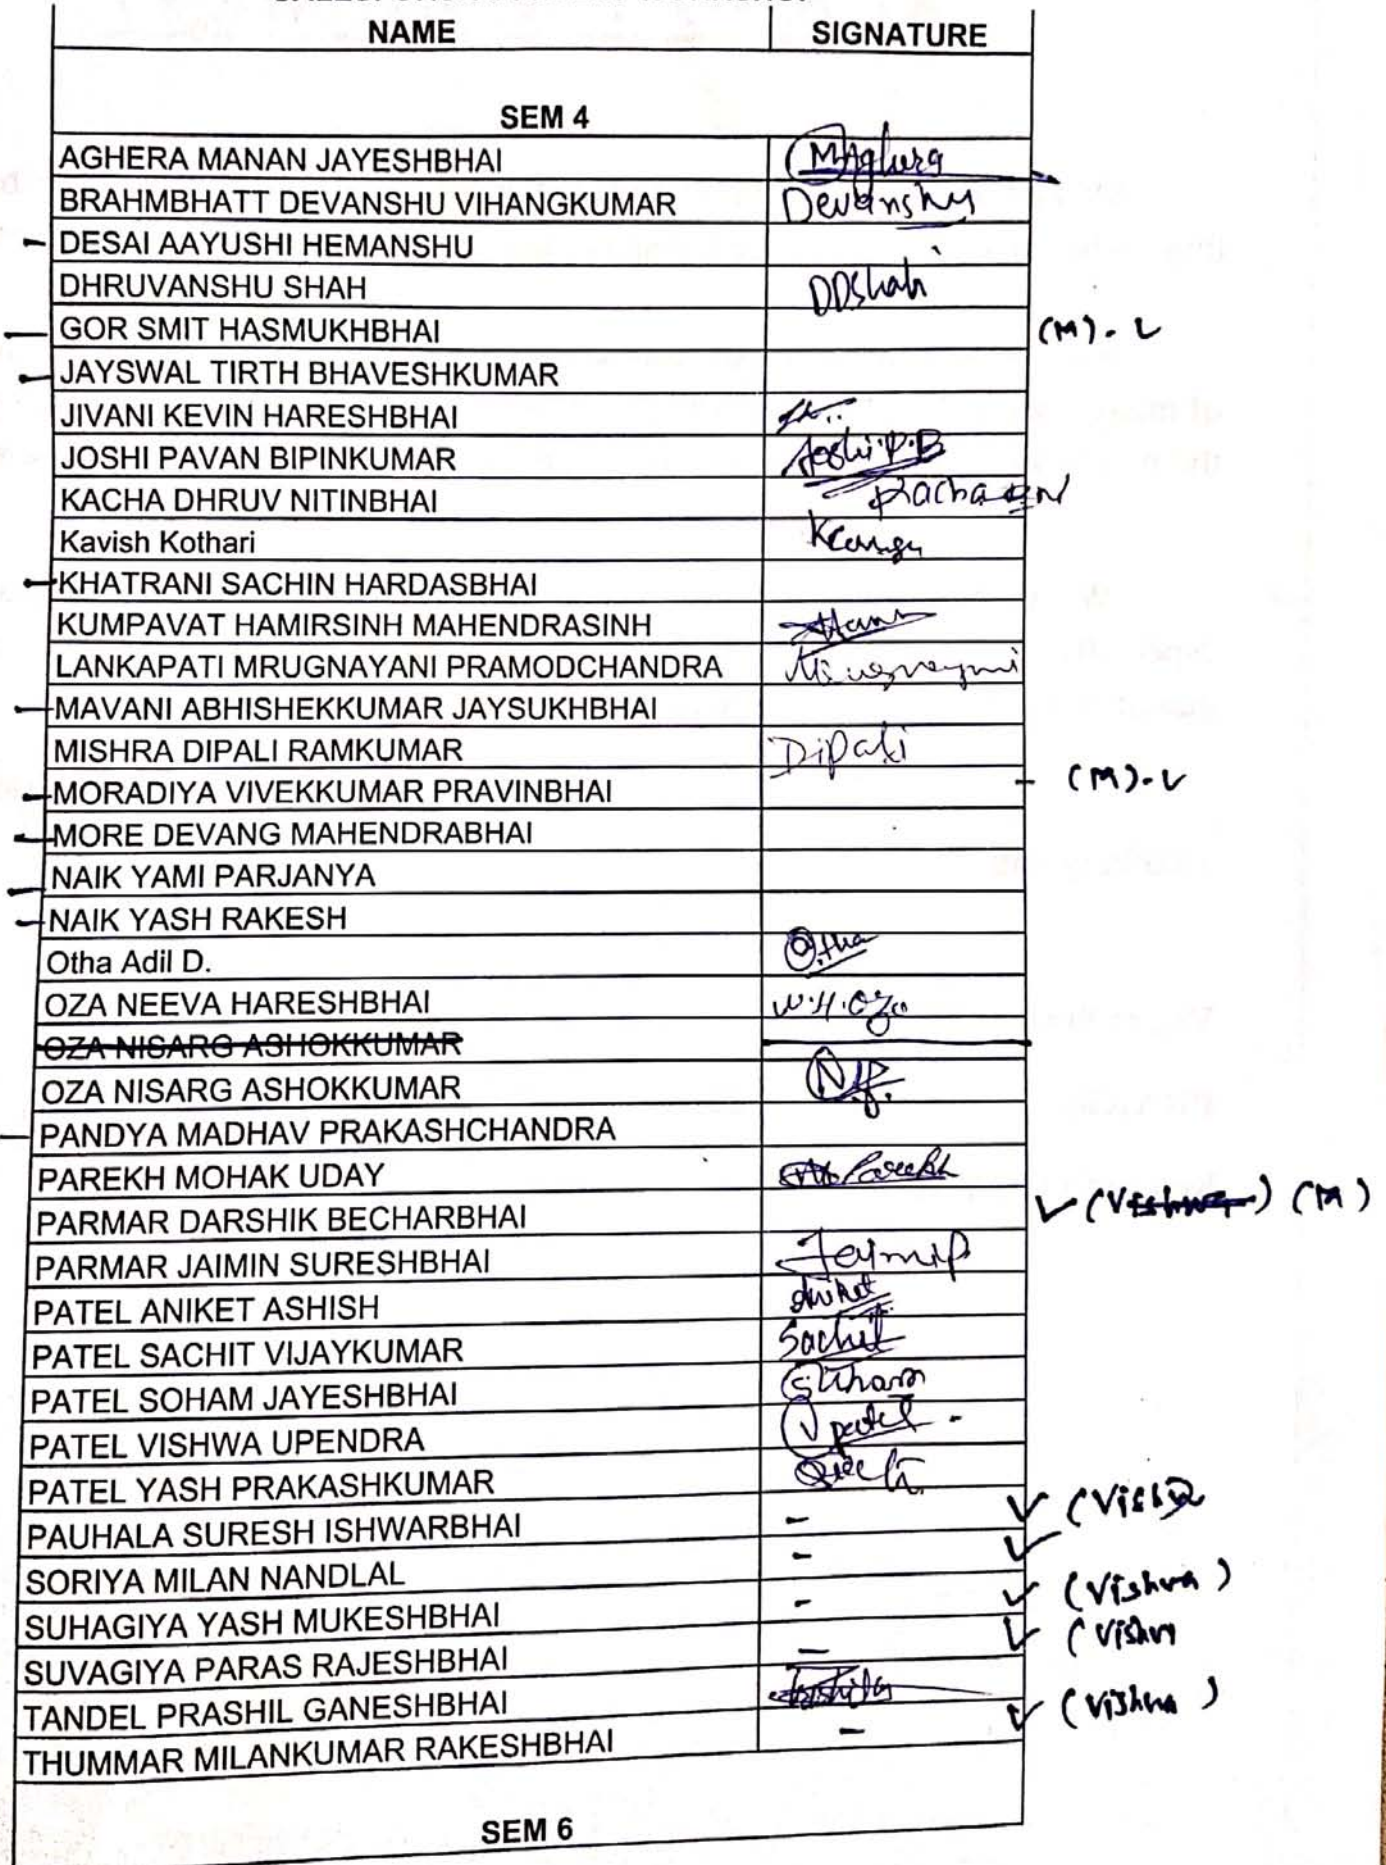 NAME SIGNATURE
SEM 4
AGHERA MANAN JAYESHBHAI MAghera
BRAHMBHATT DEVANSHU VIHANGKUMAR Devanshu
DESAI AAYUSHI HEMANSHU
DHRUVANSHU SHAH DDShah
GOR SMIT HASMUKHBHAI (M). ✓
JAYSWAL TIRTH BHAVESHKUMAR
JIVANI KEVIN HARESHBHAI
JOSHI PAVAN BIPINKUMAR Joshi.P.B
KACHA DHRUV NITINBHAI Kacha DN
Kavish Kothari
KHATRANI SACHIN HARDASBHAI
KUMPAVAT HAMIRSINH MAHENDRASINH
LANKAPATI MRUGNAYANI PRAMODCHANDRA
MAVANI ABHISHEKKUMAR JAYSUKHBHAI
MISHRA DIPALI RAMKUMAR Dipali
MORADIYA VIVEKKUMAR PRAVINBHAI (M).✓
MORE DEVANG MAHENDRABHAI
NAIK YAMI PARJANYA
NAIK YASH RAKESH
Otha Adil D. Otha
OZA NEEVA HARESHBHAI N.H.Oza
OZA NISARG ASHOKKUMAR
OZA NISARG ASHOKKUMAR
PANDYA MADHAV PRAKASHCHANDRA
PAREKH MOHAK UDAY Parekh
PARMAR DARSHIK BECHARBHAI ✓ (Vishwa) (M)
PARMAR JAIMIN SURESHBHAI
PATEL ANIKET ASHISH Aniket
PATEL SACHIT VIJAYKUMAR Sachit
PATEL SOHAM JAYESHBHAI
PATEL VISHWA UPENDRA V patel
PATEL YASH PRAKASHKUMAR
PAUHALA SURESH ISHWARBHAI - ✓
SORIYA MILAN NANDLAL - ✓
SUHAGIYA YASH MUKESHBHAI - ✓ (Vishva)
SUVAGIYA PARAS RAJESHBHAI - ✓
TANDEL PRASHIL GANESHBHAI
THUMMAR MILANKUMAR RAKESHBHAI - ✓ (Vishva)
SEM 6